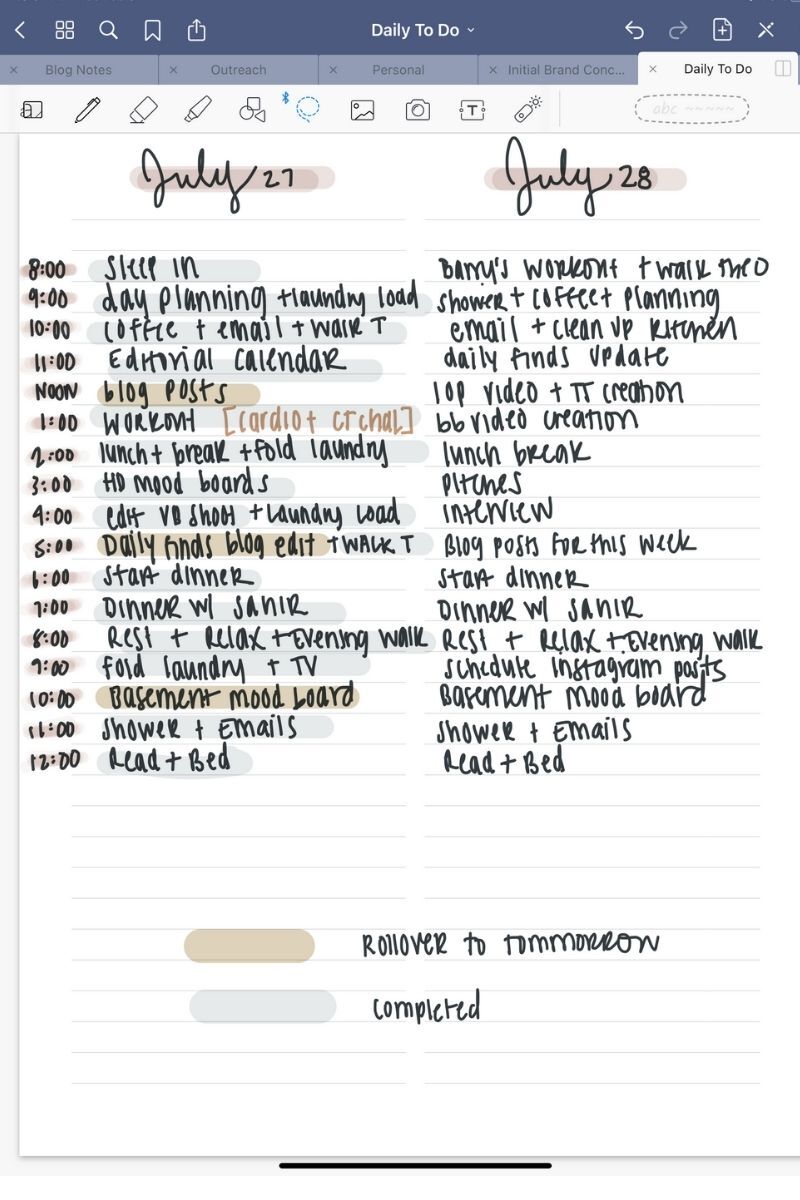 Daily To Do
Blog Notes
Outreach
Personal
Initial Brand Conc...
Daily To Do
T
abc
July 27 July 28
8:00 Sleep in Barry's workout + walk theo
9:00 day planning + laundry load shower + coffee + planning
10:00 coffee + email + walk T email + clean up kitchen
11:00 Editorial calendar daily finds update
NOON blog posts 10p video + TT creation
1:00 workout [cardio + CT chal] bb video creation
2:00 lunch + break + fold laundry lunch break
3:00 HD mood boards Pitches
4:00 edit VB shoot + laundry load Interview
5:00 Daily finds blog edit + WALK T Blog posts for this week
6:00 start dinner start dinner
7:00 Dinner w/ Sahir Dinner w/ Sahir
8:00 Rest + Relax + Evening walk Rest + Relax + Evening walk
9:00 fold laundry + TV schedule Instagram posts
10:00 Basement mood board Basement mood board
11:00 Shower + Emails Shower + Emails
12:00 Read + Bed Read + Bed
Rollover to tommorrow
completed